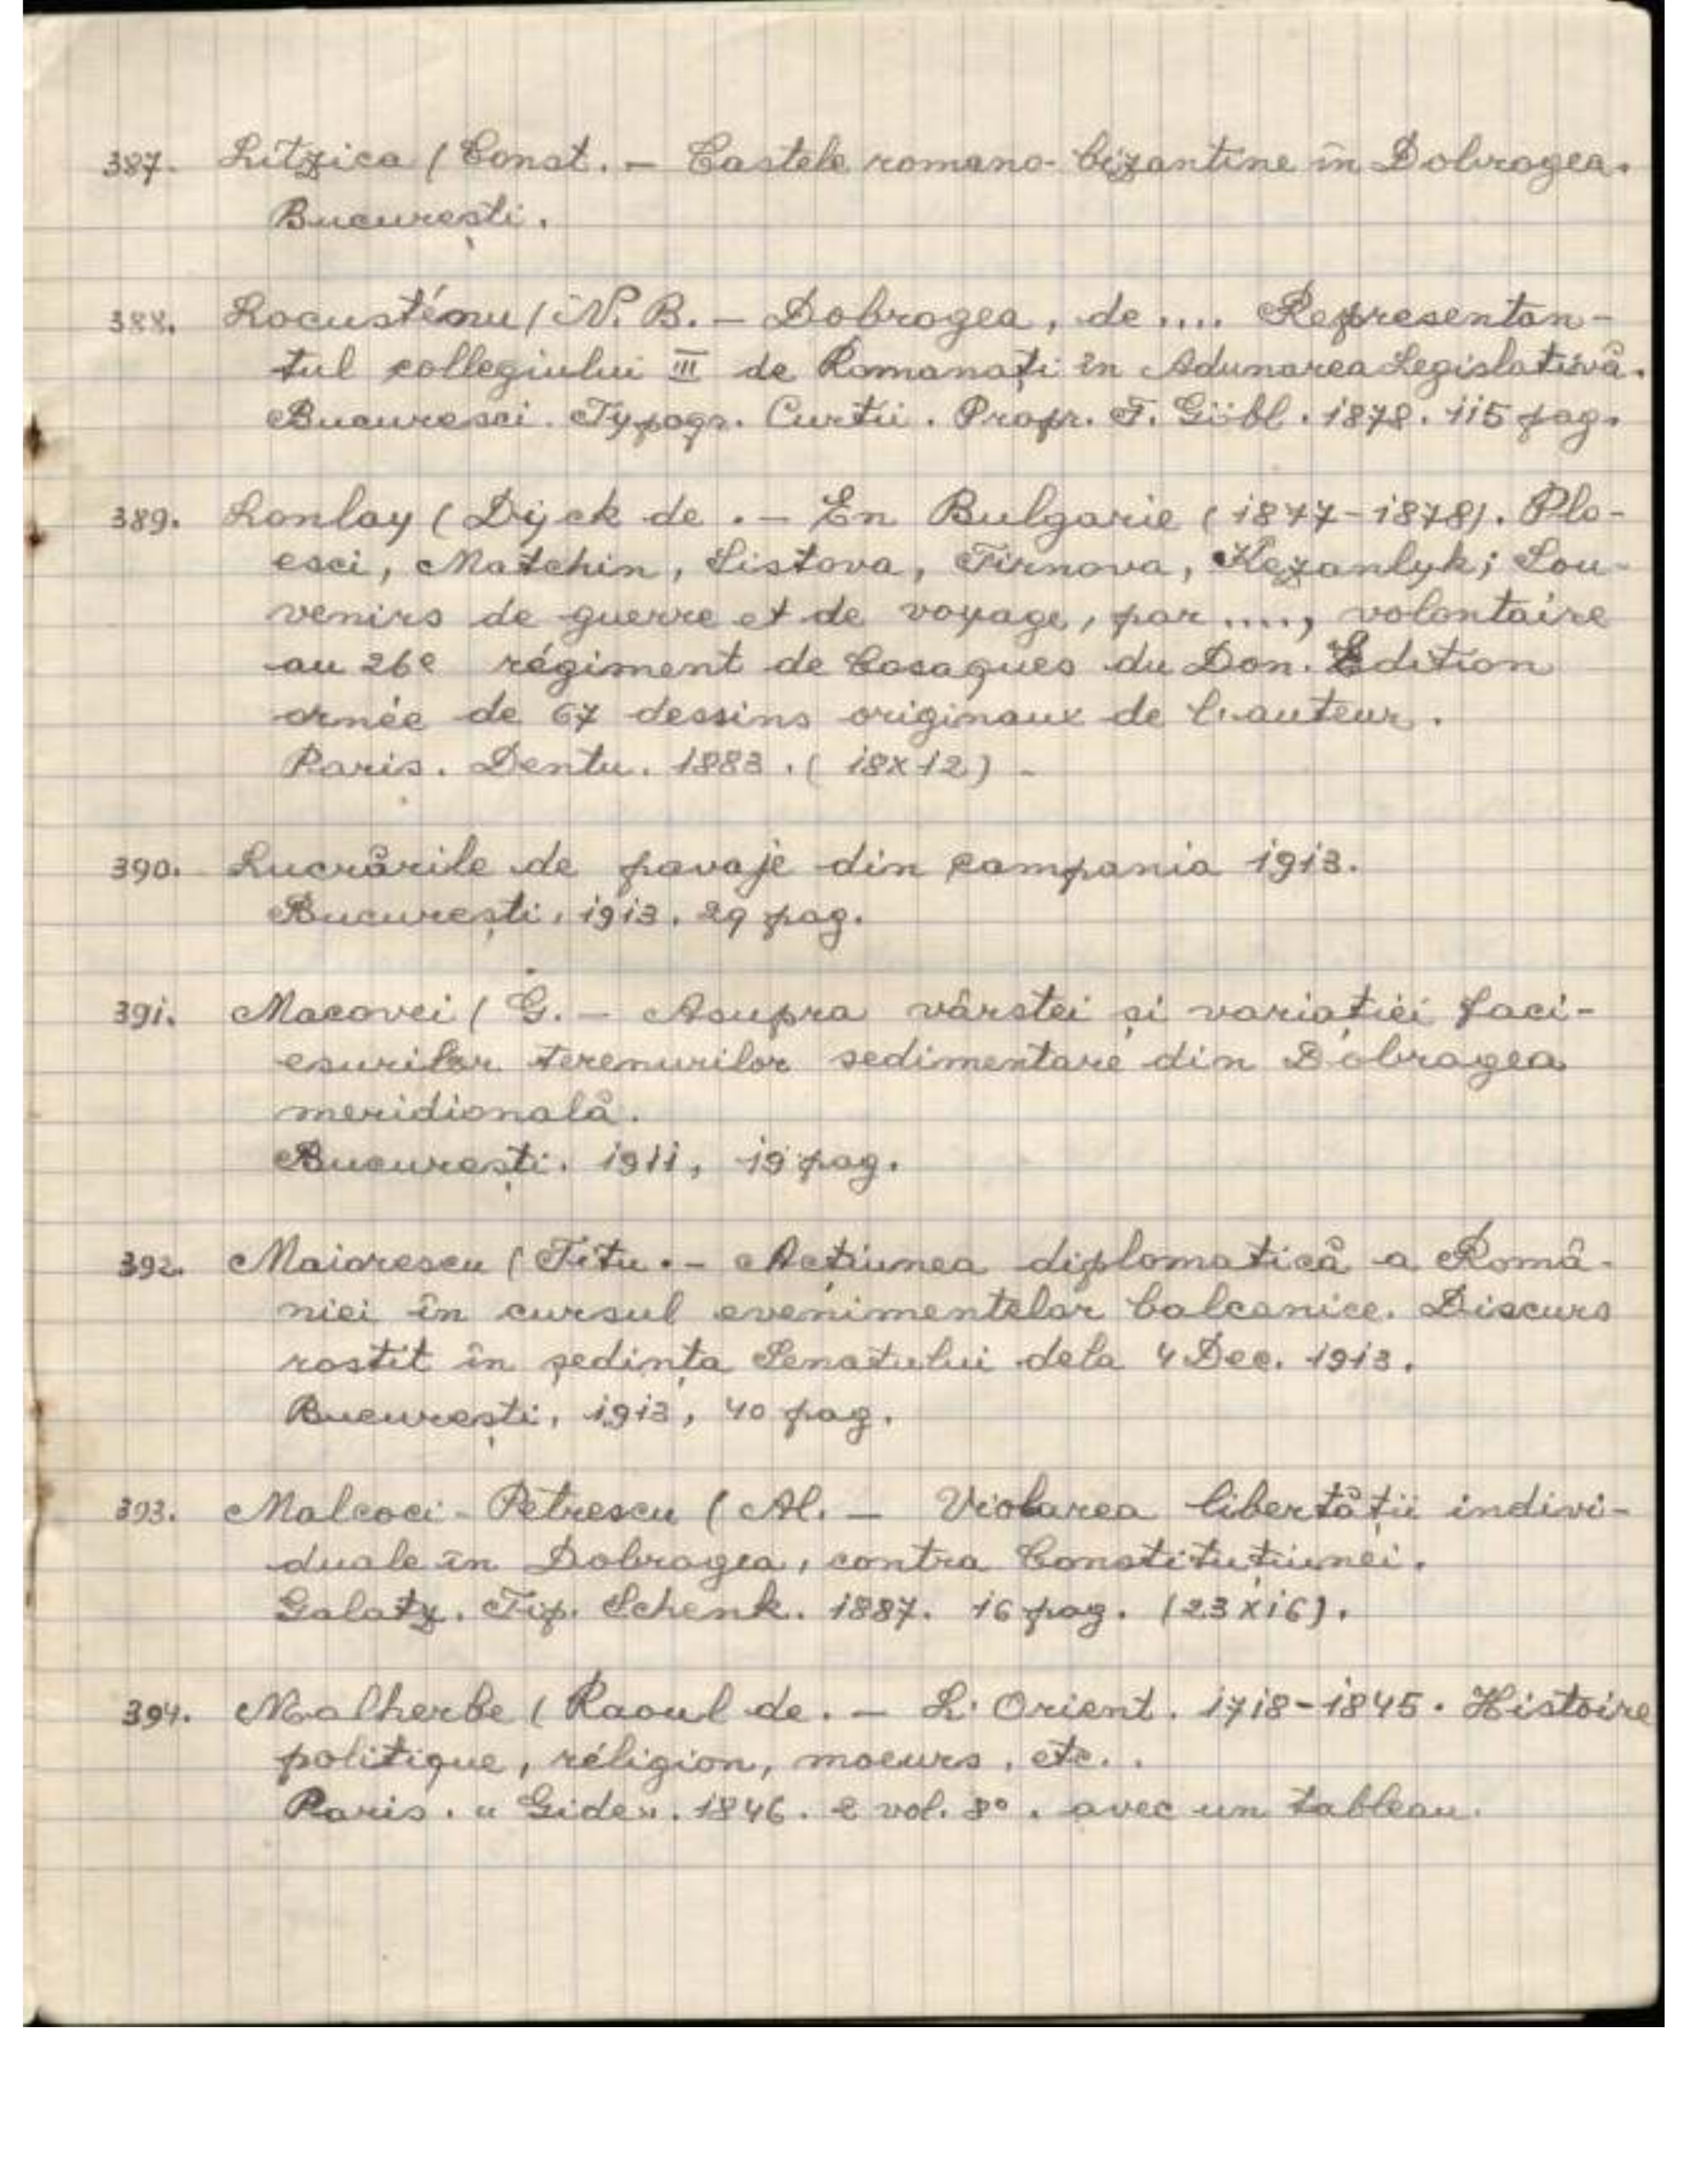 387. Litzica (Const. – Castele romano-bizantine în Dobrogea.
București.
388. Locusténu (N. B. – Dobrogea, de .... Representan-
tul collegiului III de Romanați în Adunarea Legislativă.
Bucuresci. Typogr. Curtii. Propr. F. Göbl. 1878. 115 pag.
389. Lonlay (Dyck de. – En Bulgarie (1877-1878). Plo-
esci, Matchin, Sistova, Tirnova, Kezanlyk; Sou-
venirs de guerre et de voyage, par ...., volontaire
au 26e régiment de Cosaques du Don. Edition
ornée de 67 dessins originaux de l'auteur.
Paris. Dentu. 1883. (18x12) -
390. Lucrările de pavaje din campania 1913.
București, 1913. 29 pag.
391. Macovei (G. – Asupra vârstei și variației faci-
esurilor terenurilor sedimentare din Dobrogea
meridională.
București. 1911, 19 pag.
392. Maiorescu (Titu. – Acțiunea diplomatică a Româ-
niei în cursul evenimentelor balcanice. Discurs
rostit în ședința Senatului dela 4 Dec. 1913.
București, 1913, 40 pag.
393. Malcoci-Petrescu (Al. – Violarea libertății indivi-
duale în Dobrogea, contra Constituțiunei.
Galatz. Tip. Schenk. 1887. 16 pag. (23x16).
394. Malherbe (Raoul de. – L'Orient. 1718-1845. Histoire
politique, réligion, moeurs, etc..
Paris. "Gide". 1846. 2 vol. 8°. avec un tableau.